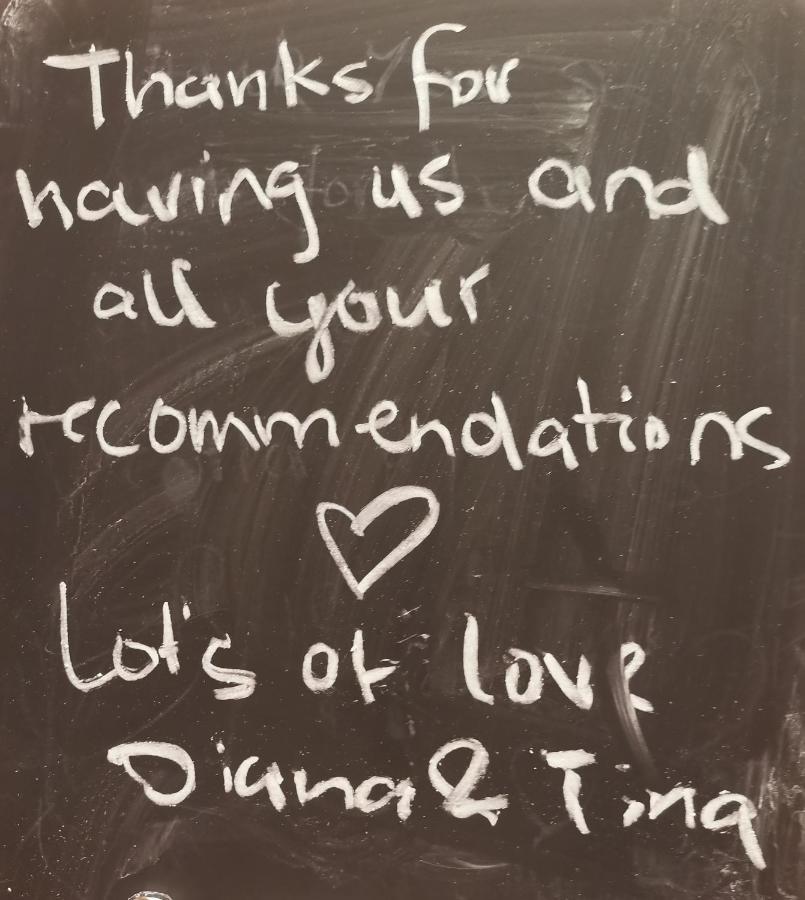 Thanks for
having us and
all your
recommendations
♡
Lot's of love
Diana & Tina